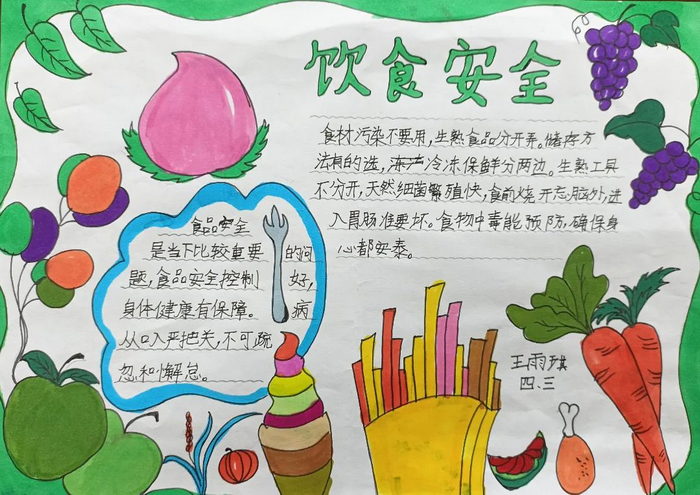 饮食安全
食材污染不要用,生熟食品分开弄。储存方
法有的选,冻冷冻保鲜分两边。生熟工具
不分开,天然细菌繁殖快,食前烧开忘脑外,进
入胃肠准要坏。食物中毒能预防,确保身
心都安泰。
食品安全
是当下比较重要的问
题,食品安全控制好,
身体健康有保障。病
从口入严把关,不可疏
忽和懈怠。
王雨琪
四.三